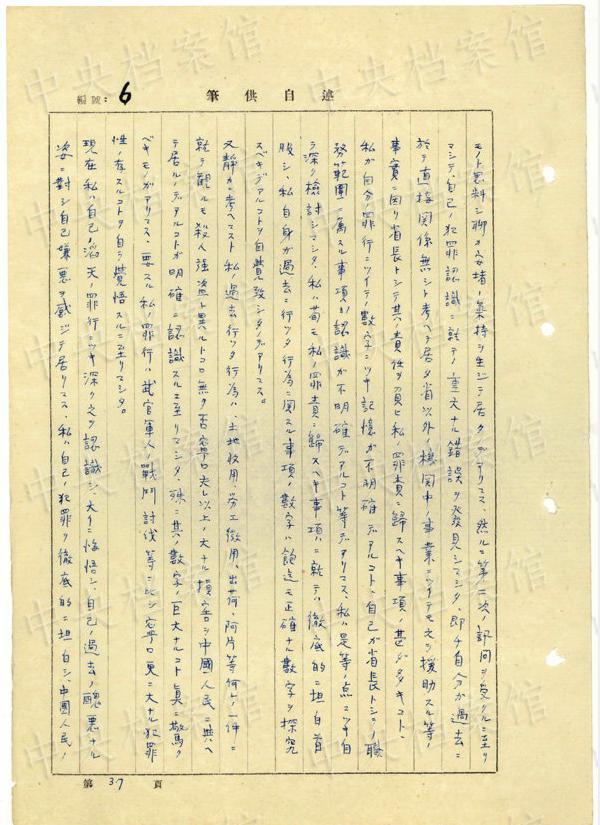 編號:6
筆供自述
モノト思料シ聊カ安堵ノ氣持ヲ生ジテ居タノデアリマス、然ルニ第二次ノ訊問ヲ受クルニ至リ
マシテ、自己ノ犯罪認識ニ就テノ重大ナル錯誤ヲ発見シマシタ、即チ自分ガ過去ニ
於テ直接関係無シト考ヘテ居タ省以外ノ機関中ノ事業ニツイテモ之ヲ援助スル等ノ
事實ニ因リ省長トシテ其ノ責任ヲ負ヒ私ノ罪責ニ歸スベキ事項ノ甚ダ多キコト、
私ガ自分ノ罪行ニツイテノ數字ニツキ記憶ガ不明確デアルコト、自己ガ省長トシテノ職
務範圍ニ屬スル事項ノ認識ガ不明確デアルコト等デアリマス、私ハ是等ノ点ニツキ自
ラ深ク檢討シマシタ、私ハ苟モ私ノ罪責ニ歸スベキ事項ハニ就テハ徹底的ニ坦白首
服シ、私自身ガ過去ニ行ツタ行為ニ関スル事項ノ數字ハ飽迄モ正確ナル數字ヲ探究
スベキデアルコトヲ自覺致シタノデアリマス。
又静カニ考ヘマスト私ノ過去行ツタ行為ハ、土地收用、勞工徴用、出荷、阿片等何レノ一件ニ
就テ觀ルモ殺人強盗ト異ルトコロ無ク否寧ロ夫レ以上ノ大ナル損害ヲ中國人民ニ與ヘ
テ居ルノデアルコトガ明確ニ認識スルニ至リマシタ、殊ニ其ノ數字ノ巨大ナルコト眞ニ驚ク
ベキモノガアリマス、要スルニ私ノ罪行ハ武官軍人ノ戰鬥討伐等ニ比シ寧ロ更ニ大ナル犯罪
性ノ存スルコトヲ自ラ覺悟スルニ至リマシタ。
現在私ハ自己ノ滔天ノ罪行ニツキ深ク之ヲ認識シ、大イニ悔悟シ、自己ノ過去ノ醜悪ナル
姿ニ對シ自己嫌悪ヲ感ジテ居リマス、私ハ自己ノ犯罪ヲ徹底的ニ坦白シ、中國人民ノ
第37頁
中央档案馆